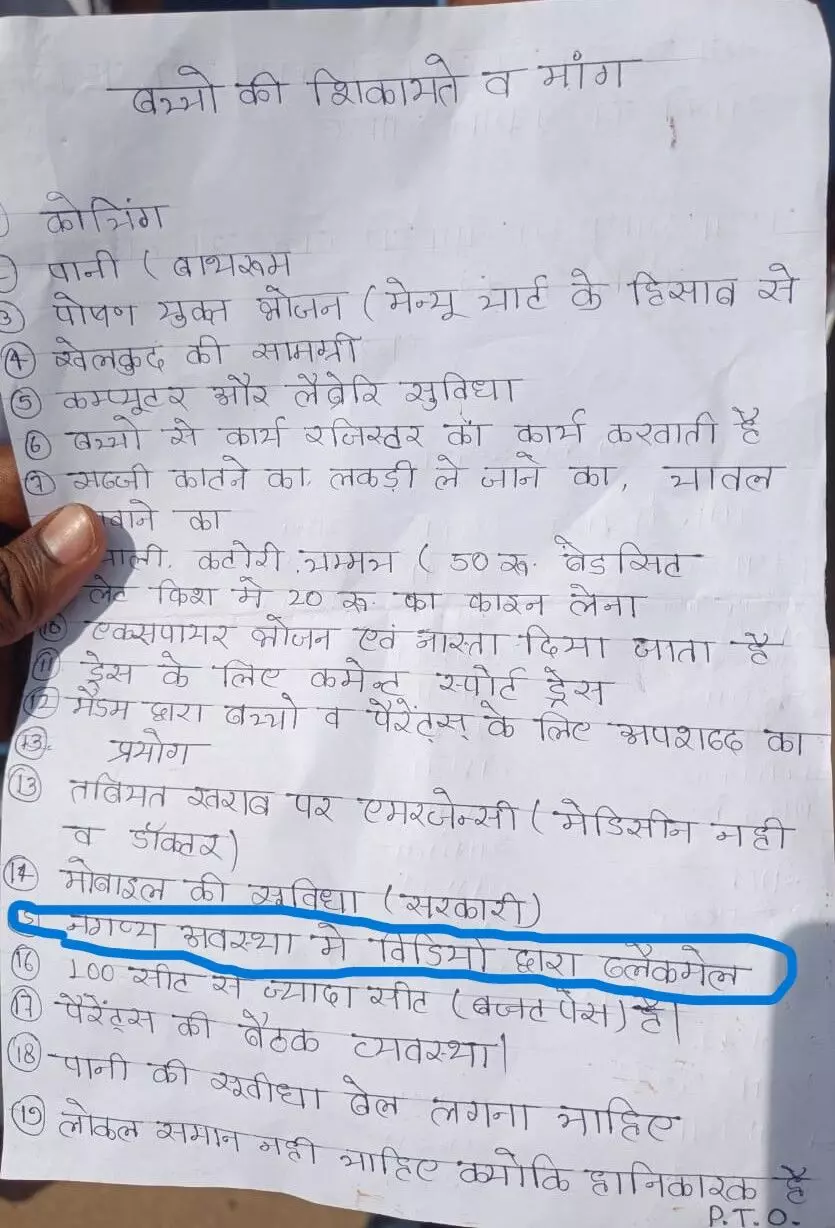 बच्चो की शिकायते व मांग
कोचिंग
पानी ( बाथरूम
③ पोषण युक्त भोजन ( मेन्यू चार्ट के हिसाब से
④ खेलकुद की सामग्री
⑤ कम्प्यूटर और लैब्रेरि सुविधा
⑥ बच्चो से कार्य रजिस्टर का कार्य करवाती है
⑦ सब्जी काटने का, लकड़ी ले जाने का, चावल
का
कटोरी, चम्मच ( 50 रू. बेडसिट
लेट फिश मे 20 रू. का फाइन लेना
⑩ एक्सपायर भोजन एवं नास्ता दिया जाता है
⑪ ड्रेस के लिए कमेन्ट स्पोर्ट ड्रेस
⑫ मैडम द्वारा बच्चो व पैरेंट्स् के लिए अपशब्द का
⑬. प्रयोग
⑬ तबियत खराब पर एमरजेन्सी ( मेडिसीन नही
व डॉक्टर)
⑭ मोबाइल की सुविधा (सरकारी)
नगण्य अवस्था मे विडियो द्वारा ब्लैकमेल
⑯ 100 सीट से ज्यादा सीट (बजट पैस) है|
⑰ पैरेंट्स की बैठक व्यवस्था|
⑱ पानी की सूवीधा बेल लगना चाहिए
⑲ लोकल समान नही चाहिए क्योकि हानिकारक है
P.T.O.